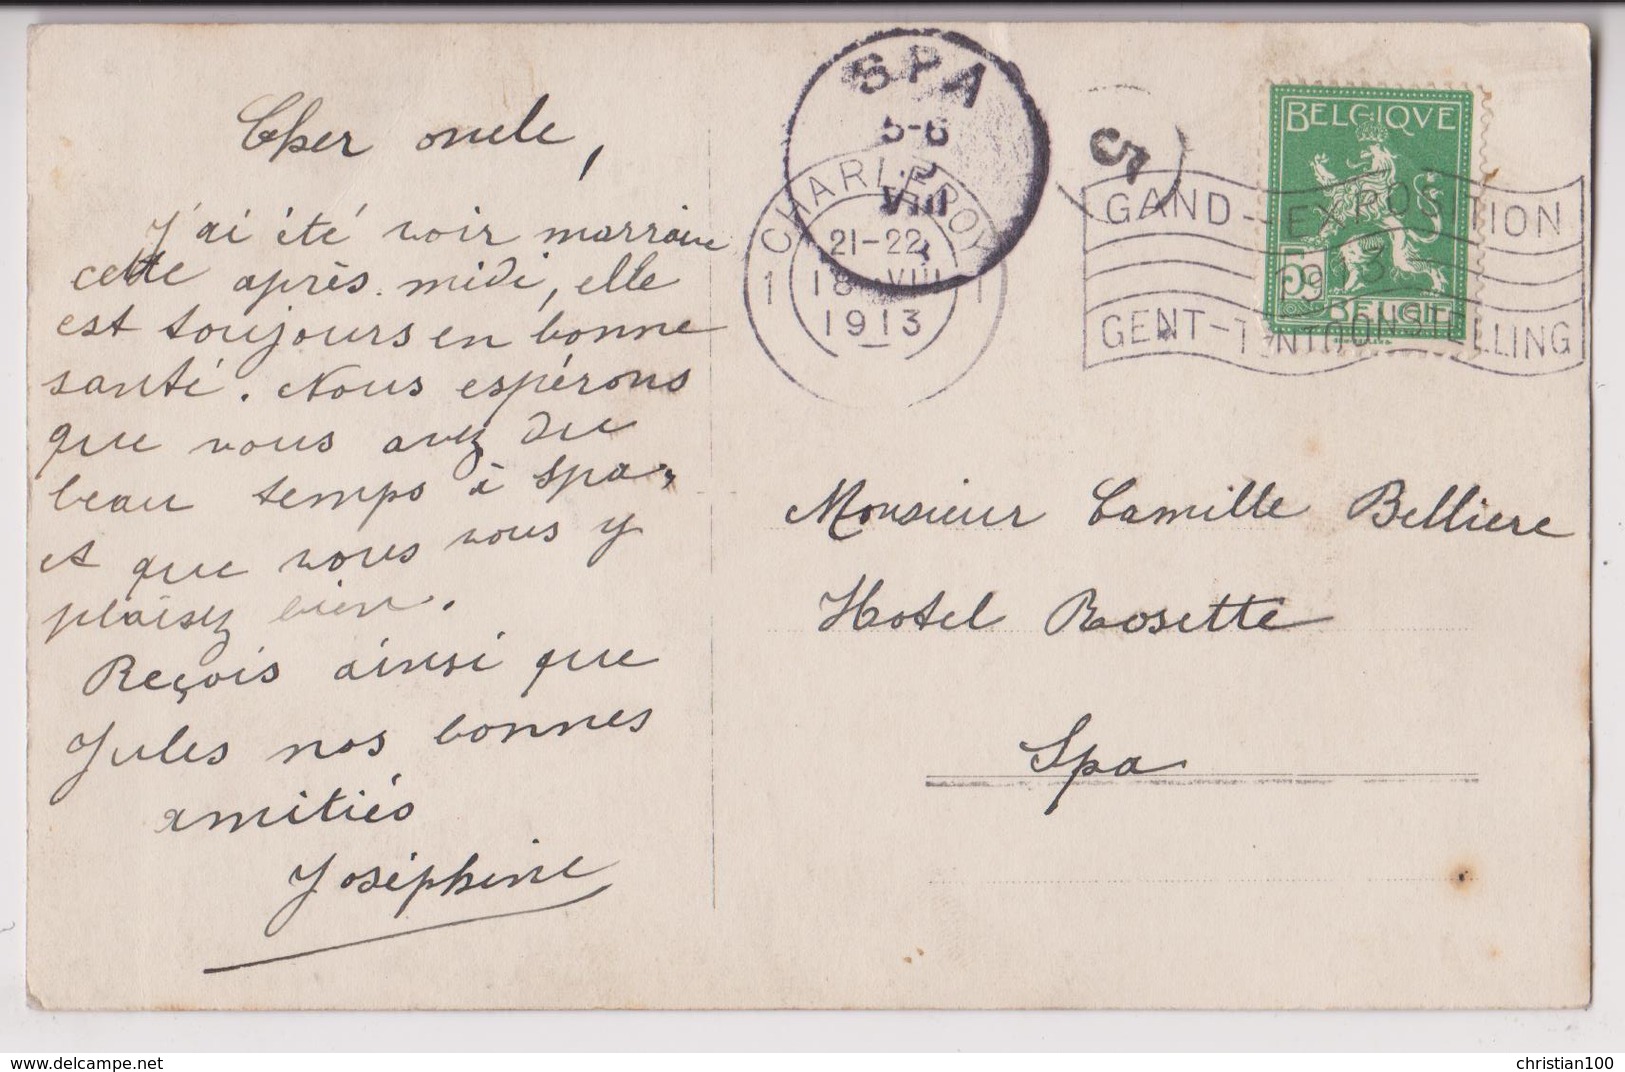 Cher oncle,
J'ai été voir marraine
cette après-midi, elle
est toujours en bonne
santé. Nous espérons
que vous avez du
beau temps à Spa,
et que vous vous y
plaisez bien.
Reçois ainsi que
Jules nos bonnes
amitiés
Joséphine
SPA
5-6
VIII
CHARLEROY
21-22
18 VIII
1 1
1913
5
BELGIQVE
5
BELGIË
GAND-EXPOSITION
1913
GENT-TENTOONSTELLING
Monsieur Camille Belliere
Hotel Rosette
Spa
www.delcampe.net
christian100